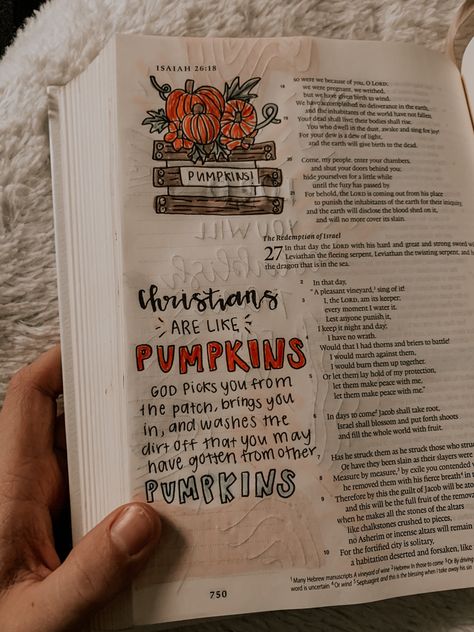 ISAIAH 26:18
PUMPKINS!
Christians
ARE LIKE
PUMPKINS
GOD PICKS YOU FROM
THE PATCH, BRINGS YOU
IN, AND WASHES THE
DIRT OFF THAT YOU MAY
HAVE GOTTEN FROM OTHER
PUMPKINS
so were we because of you, O LORD;
18 we were pregnant, we writhed,
but we have given birth to wind.
We have accomplished no deliverance in the earth,
and the inhabitants of the world have not fallen.
19 Your dead shall live; their bodies shall rise.
You who dwell in the dust, awake and sing for joy!
For your dew is a dew of light,
and the earth will give birth to the dead.
20 Come, my people, enter your chambers,
and shut your doors behind you;
hide yourselves for a little while
until the fury has passed by.
21 For behold, the LORD is coming out from his place
to punish the inhabitants of the earth for their iniquity,
and the earth will disclose the blood shed on it,
and will no more cover its slain.
The Redemption of Israel
27 In that day the LORD with his hard and great and strong sword
Leviathan the fleeing serpent, Leviathan the twisting serpent, and
the dragon that is in the sea.
2 In that day,
"A pleasant vineyard,1 sing of it!
3 I, the LORD, am its keeper;
every moment I water it.
Lest anyone punish it,
I keep it night and day;
4 I have no wrath.
Would that I had thorns and briers to battle!
I would march against them,
I would burn them up together.
5 Or let them lay hold of my protection,
let them make peace with me,
let them make peace with me."
6 In days to come2 Jacob shall take root,
Israel shall blossom and put forth shoots
and fill the whole world with fruit.
7 Has he struck them as he struck those who struck
Or have they been slain as their slayers were
8 Measure by measure,3 by exile you contended
he removed them with his fierce breath4 in
9 Therefore by this the guilt of Jacob will be atoned
and this will be the full fruit of the removal
when he makes all the stones of the altars
like chalkstones crushed to pieces,
no Asherim or incense altars will remain
10 For the fortified city is solitary,
a habitation deserted and forsaken, like
1 Many Hebrew manuscripts A vineyard of wine 2 Hebrew In those to come 3 Or By driving
word is uncertain 4 Or wind 5 Septuagint and this is the blessing when I take away his sin
750